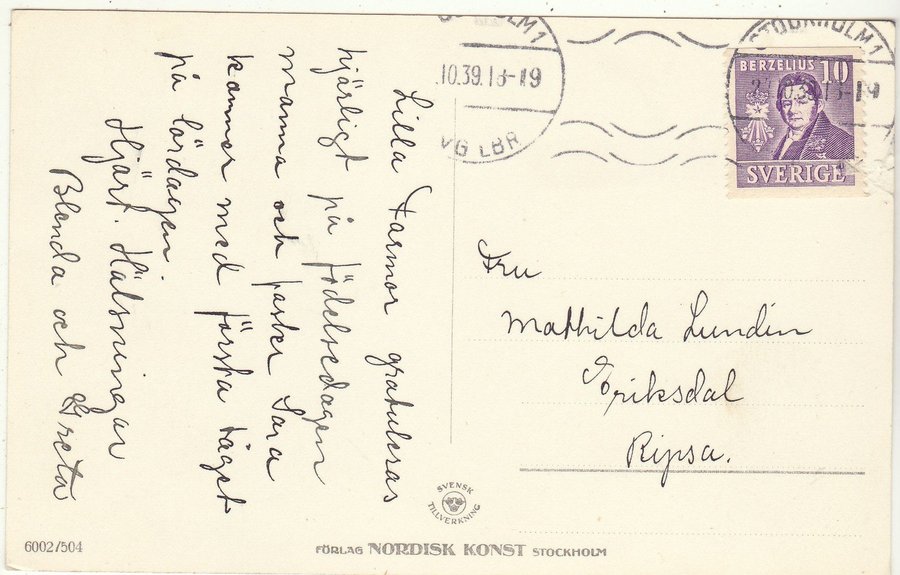 Lilla Farmor gratuleras
hjärligt på födelsedagen
mamma och faster Sara
kommer med första tåget
på lördagen.
Hjärt. Hälsningar
Blenda och Greta
STOCKHOLM 1
.10.39.18-19
VG LBR
STOCKHOLM 1
BERZELIUS 10
SVERIGE
Fru
Mathilda Lundin
Eriksdal
Ripsa.
SVENSK
TILLVERKNING
6002/504
FÖRLAG NORDISK KONST STOCKHOLM